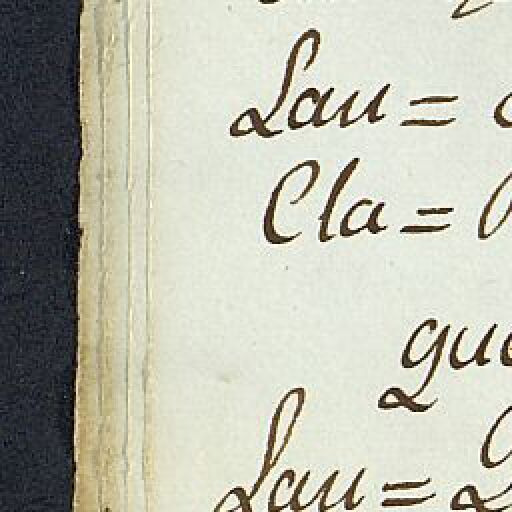 Lau=
Cla=
que
Lau=